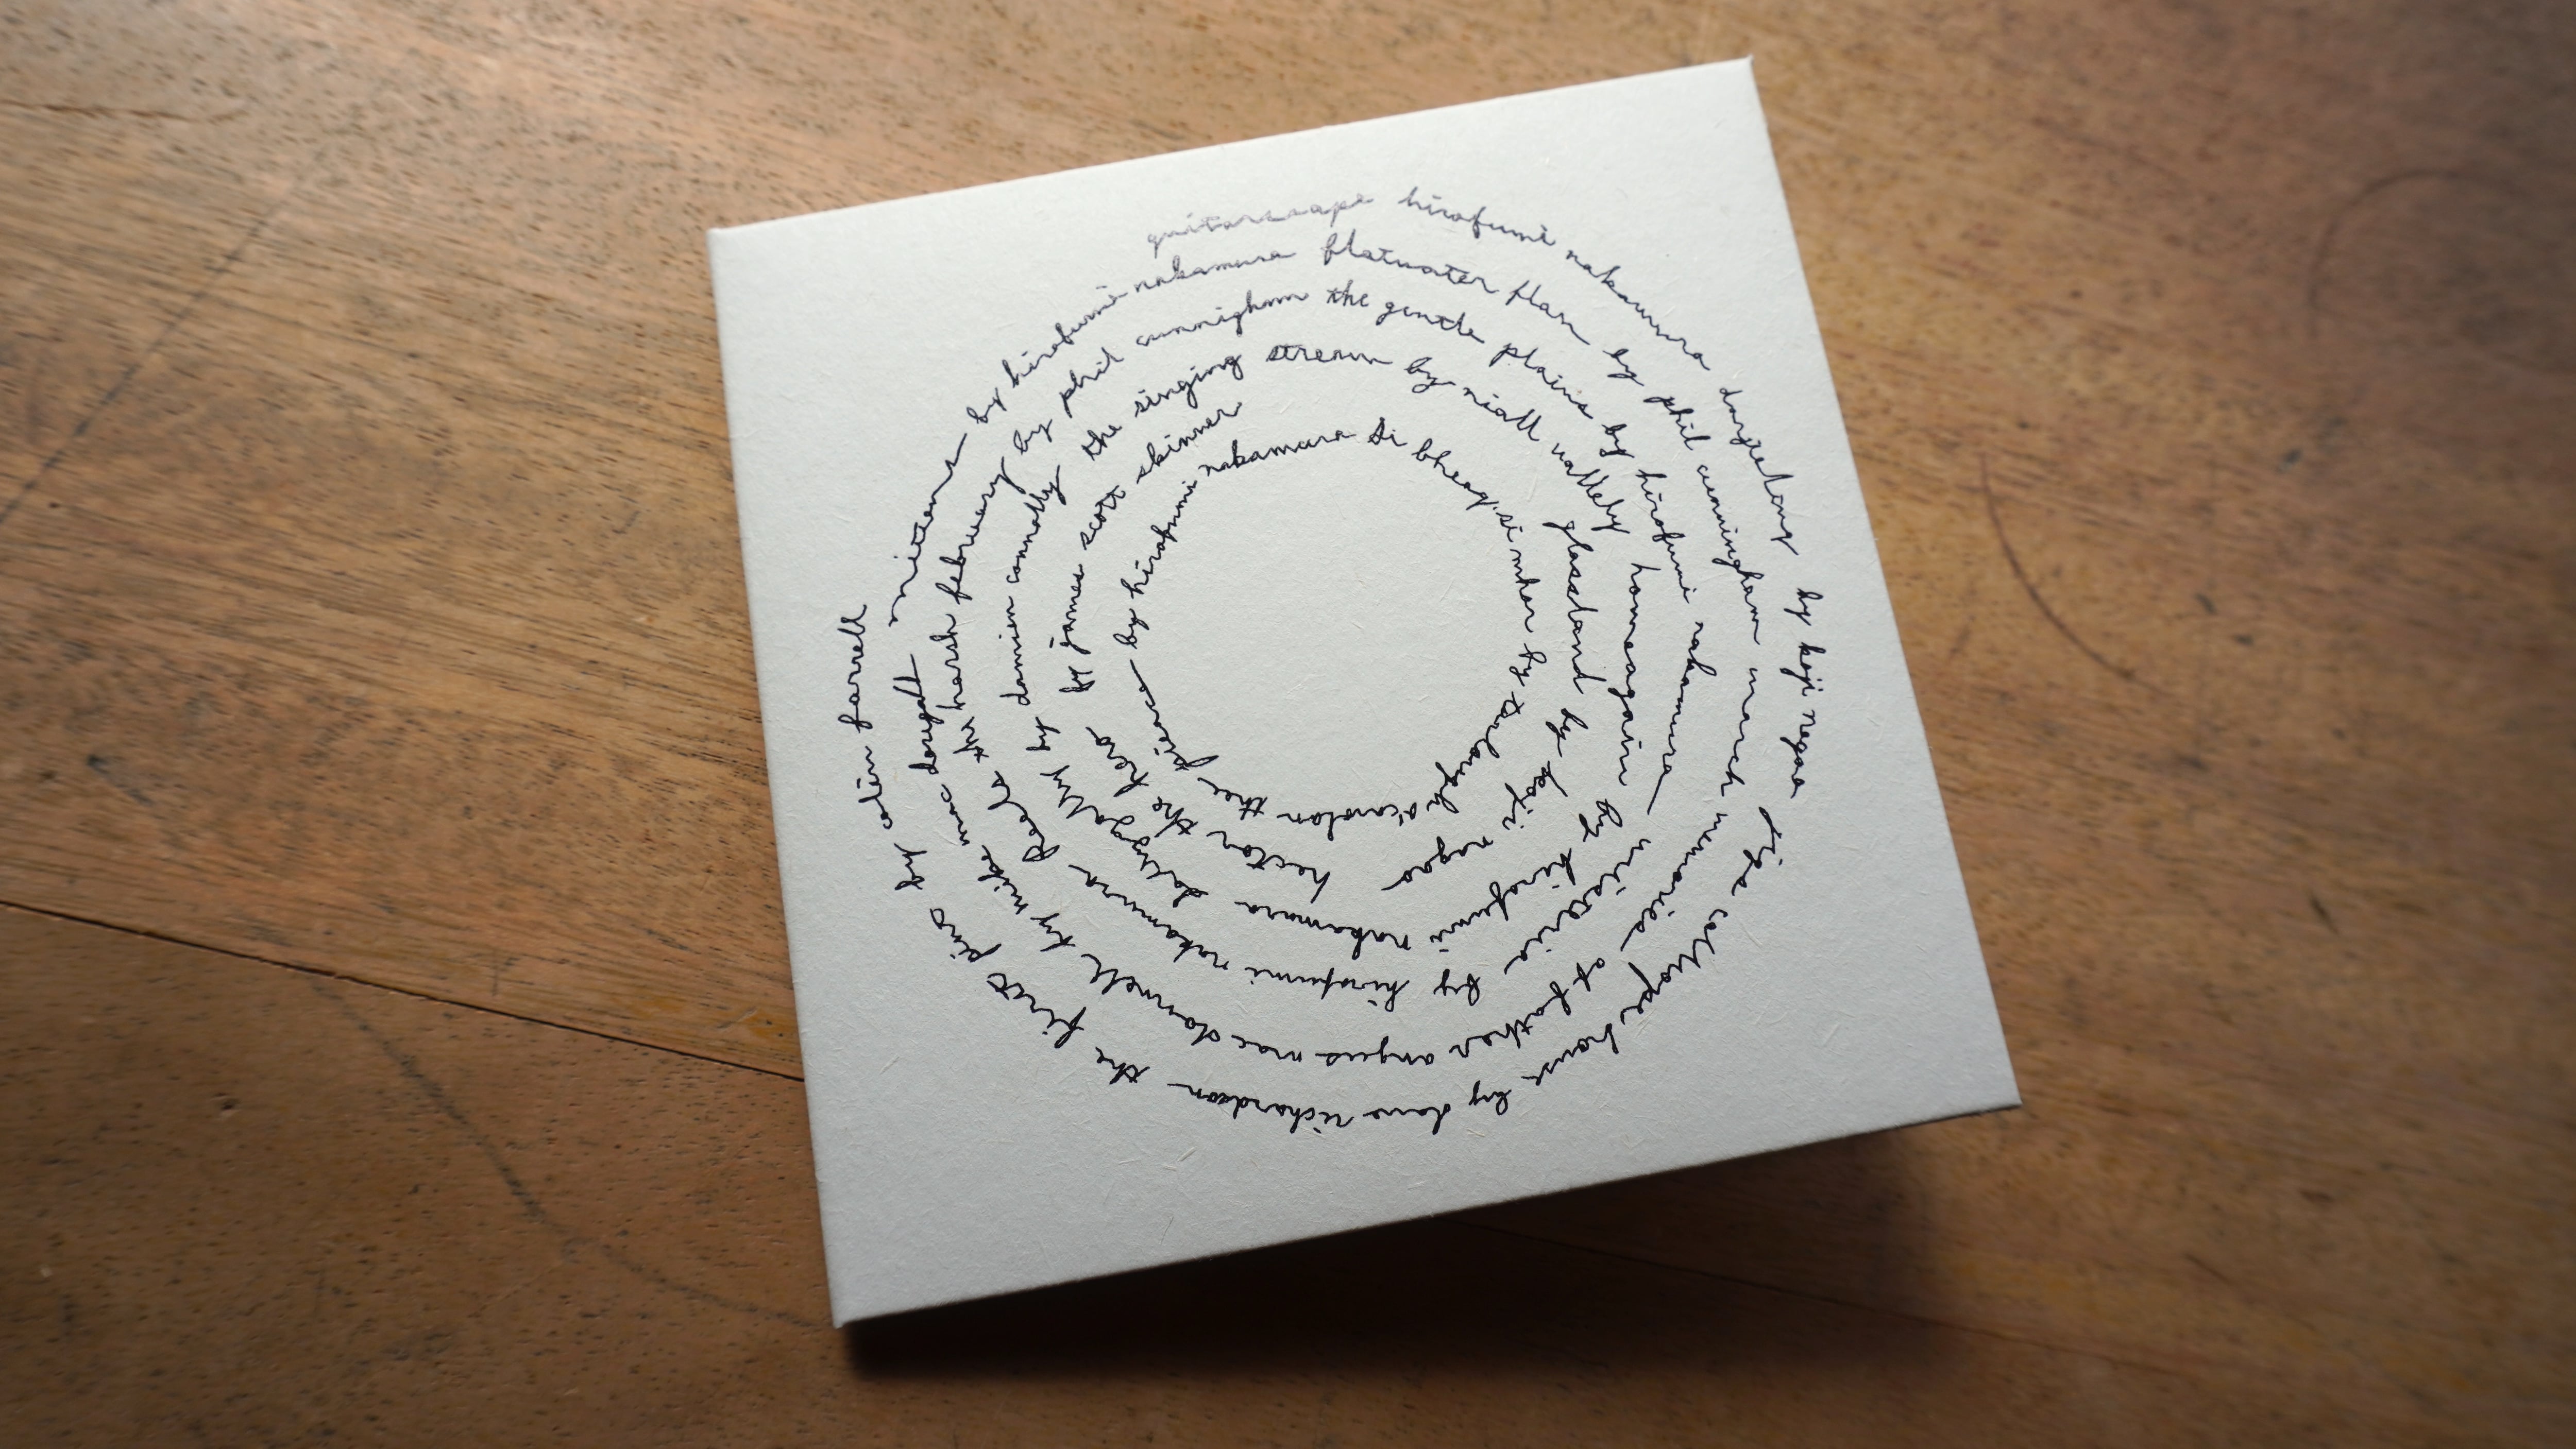 guitarscape hirofumi nakamura by koji nagao jiga calliope house by dave richardson the first pint by colin farrell
mittens by hirofumi nakamura flatwater flan by phil cunningham march memories of father angus mac donnell by mike mac dougall
the gentle plains by hirofumi nakamura wisteria by hirofumi nakamura reel the harsh february by phil cunnigham
the singing stream by niall vallely homeagain by hirofumi nakamura by damien connolly
glassland by koji nagao hector the hero by james scott skinner
si bheag, si mhor by turlough o'carolan three pieces by hirofumi nakamura